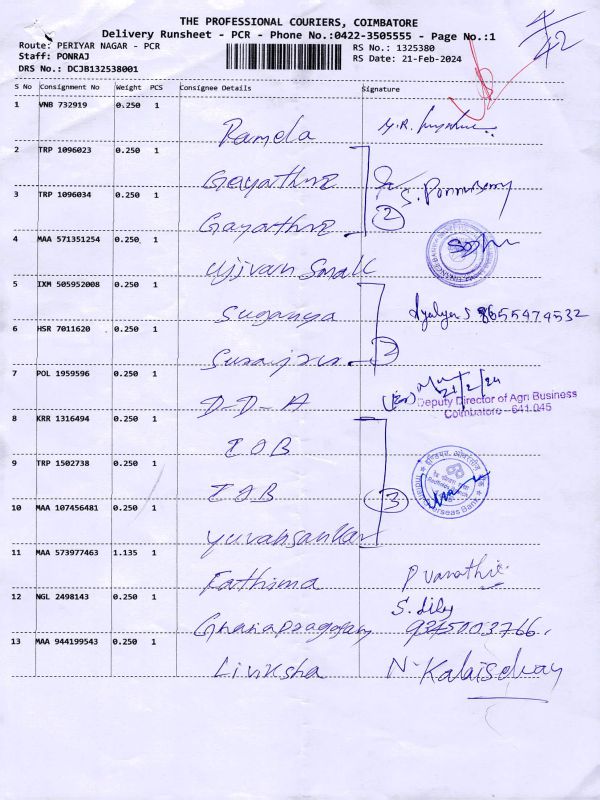 THE PROFESSIONAL COURIERS, COIMBATORE
Delivery Runsheet - PCR - Phone No.:0422-3505555 - Page No.:1
Route: PERIYAR NAGAR - PCR
RS No.: 1325380
Staff: PONRAJ
RS Date: 21-Feb-2024
DRS No.: DCJB132538001
S No Consignment No Weight PCS Consignee Details Signature
1 VNB 732919 0.250 1
Pamela
2 TRP 1096023 0.250 1
Gayathri
3 TRP 1096034 0.250 1
S. Ponnuswamy
2
Gayathri
4 MAA 571351254 0.250 1
Ujjivan Small
5 IXM 505952008 0.250 1
Suganya
8655474532
6 HSR 7011620 0.250 1
7 POL 1959596 0.250 1
21/2/24
D-D-A
Deputy Director of Agri Business
Coimbatore - 641 045
8 KRR 1316494 0.250 1
IOB
9 TRP 1502738 0.250 1
IOB
3
Overseas Bank
10 MAA 107456481 0.250 1
Yuvahsankar
11 MAA 573977463 1.135 1
Fathima
12 NGL 2498143 0.250 1
9345003766.
13 MAA 944199543 0.250 1
Liviksha
N. Kalaiselvan